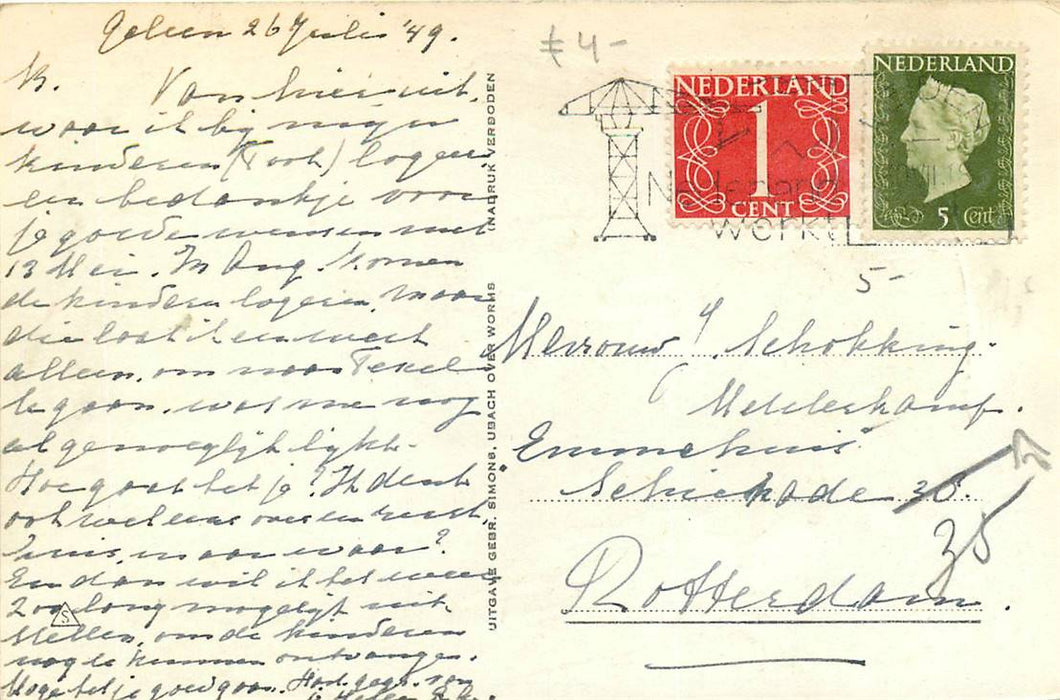 Geleen 26 Juli '49.
B. Van hier uit,
waar ik bij mijn
kinderen (Toot) logeer
een bedankje voor
je goede wensen met
13 Mei. In Aug. komen
de kinderen logeren, maar
die laat ik
alleen, om naar Texel
te gaan, wat me nog
al genoegelijk lijkt.
Hoe gaat het je? Ik denk
ook wel eens over een rust
huis, maar waar?
En dan wil ik het weer
zoo lang mogelijk uit
stellen, om de kinderen
nog te kunnen ontvangen.
Moge het je goed gaan. Hart. gegr. van
£ 4-
NEDERLAND
1
CENT
NEDERLAND
5 Cent
Nederland
werkt
5-
UITGAVE GEBR. SIMONS, UBACH OVER WORMS (NADRUK VERBODEN
S
Mevrouw Schokking.
Melderkamp.
Emmahuis
Schiekade 38.
35
Rotterdam.